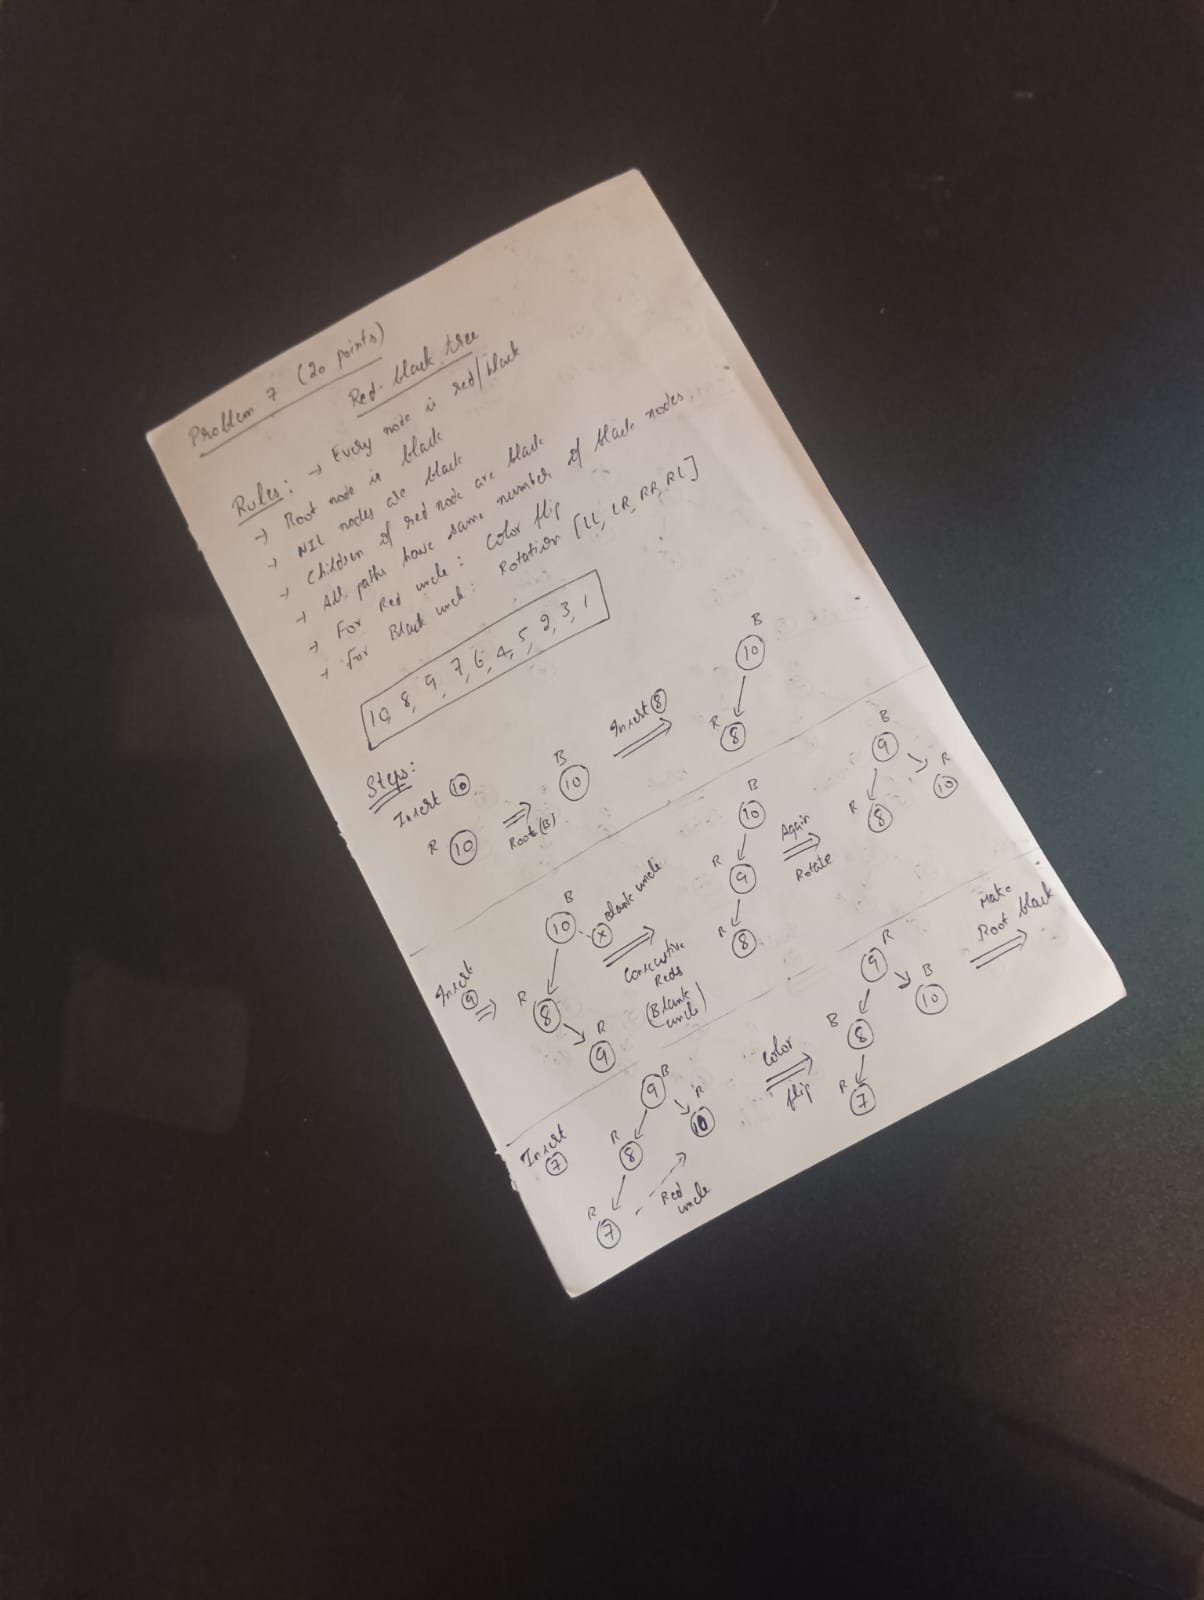 Problem 7 (20 points)
Red-black tree
Rules: → Every node is red/black
→ Root node is black
→ NIL nodes are black
→ Children of red node are black
→ All paths have same number of black nodes.
→ For Red uncle: Color flip
→ For Black uncle: Rotation [LL, LR, RR, RL]
10, 8, 9, 7, 6, 4, 5, 2, 3, 1
Steps:
Insert 10
R 10
⇒
Root (B)
B
10
Insert 8
B
10
R
8
Insert
9
⇒
B
10
X Black uncle
R
8
R
9
Consecutive
Reds
(Black
uncle)
B
10
R
9
R
8
Again
Rotate
B
9
R
8
R
10
Insert
7
9 B
R
8
R
10
R
7
Red
uncle
Color
flip
9 R
B
8
B
10
R
7
Make
Root black